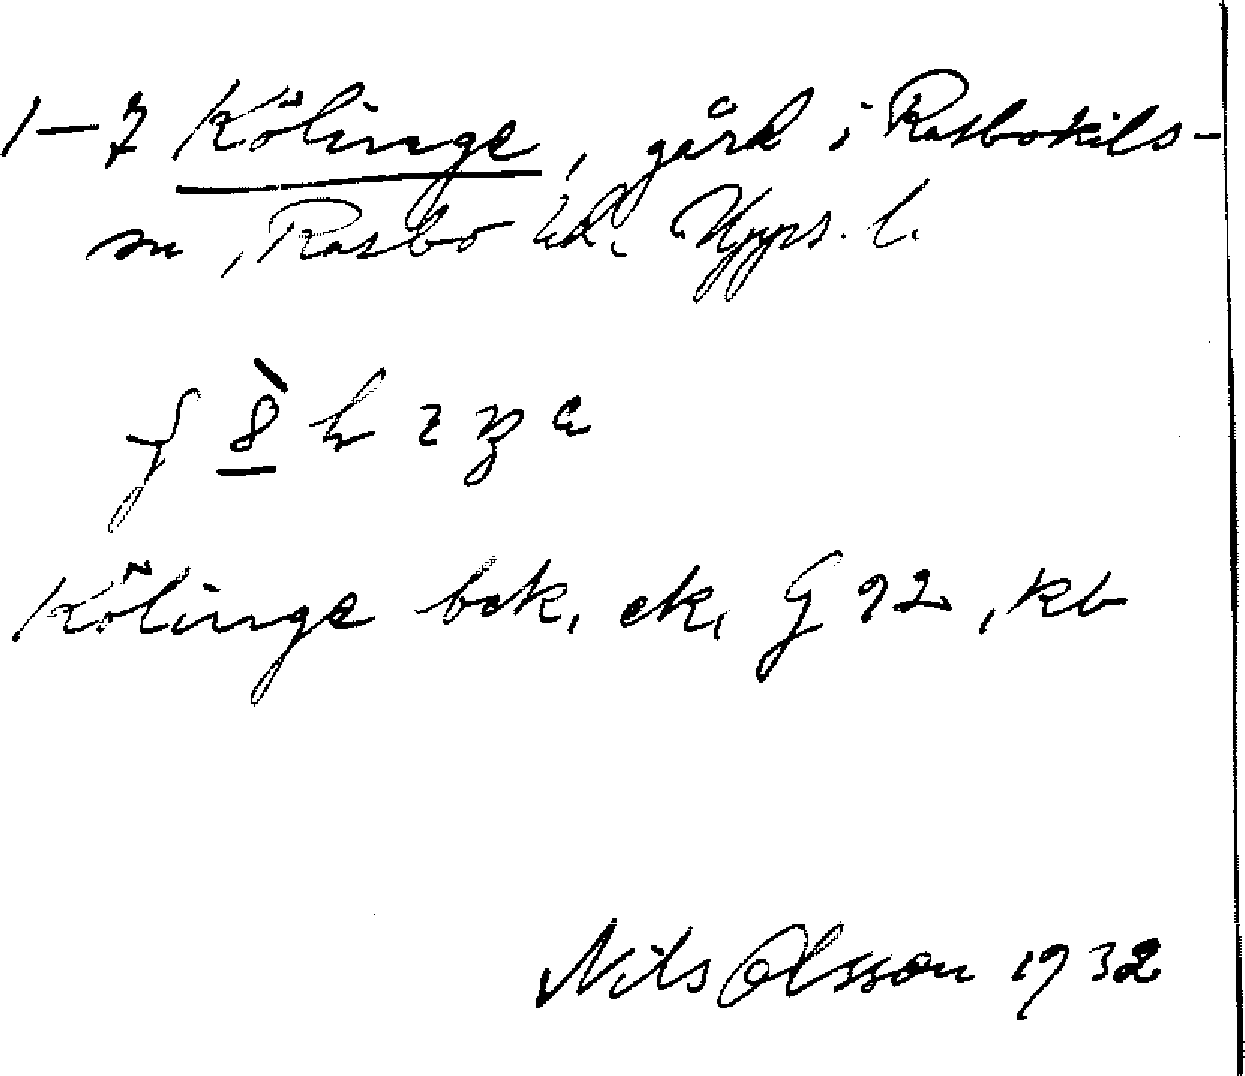 1–7 Kölinge, gård i Rasbokils-
sn, Rasbo hd. Upps. l.
Kölinge bek, ek, G 92, kb
Nils Olsson 1932